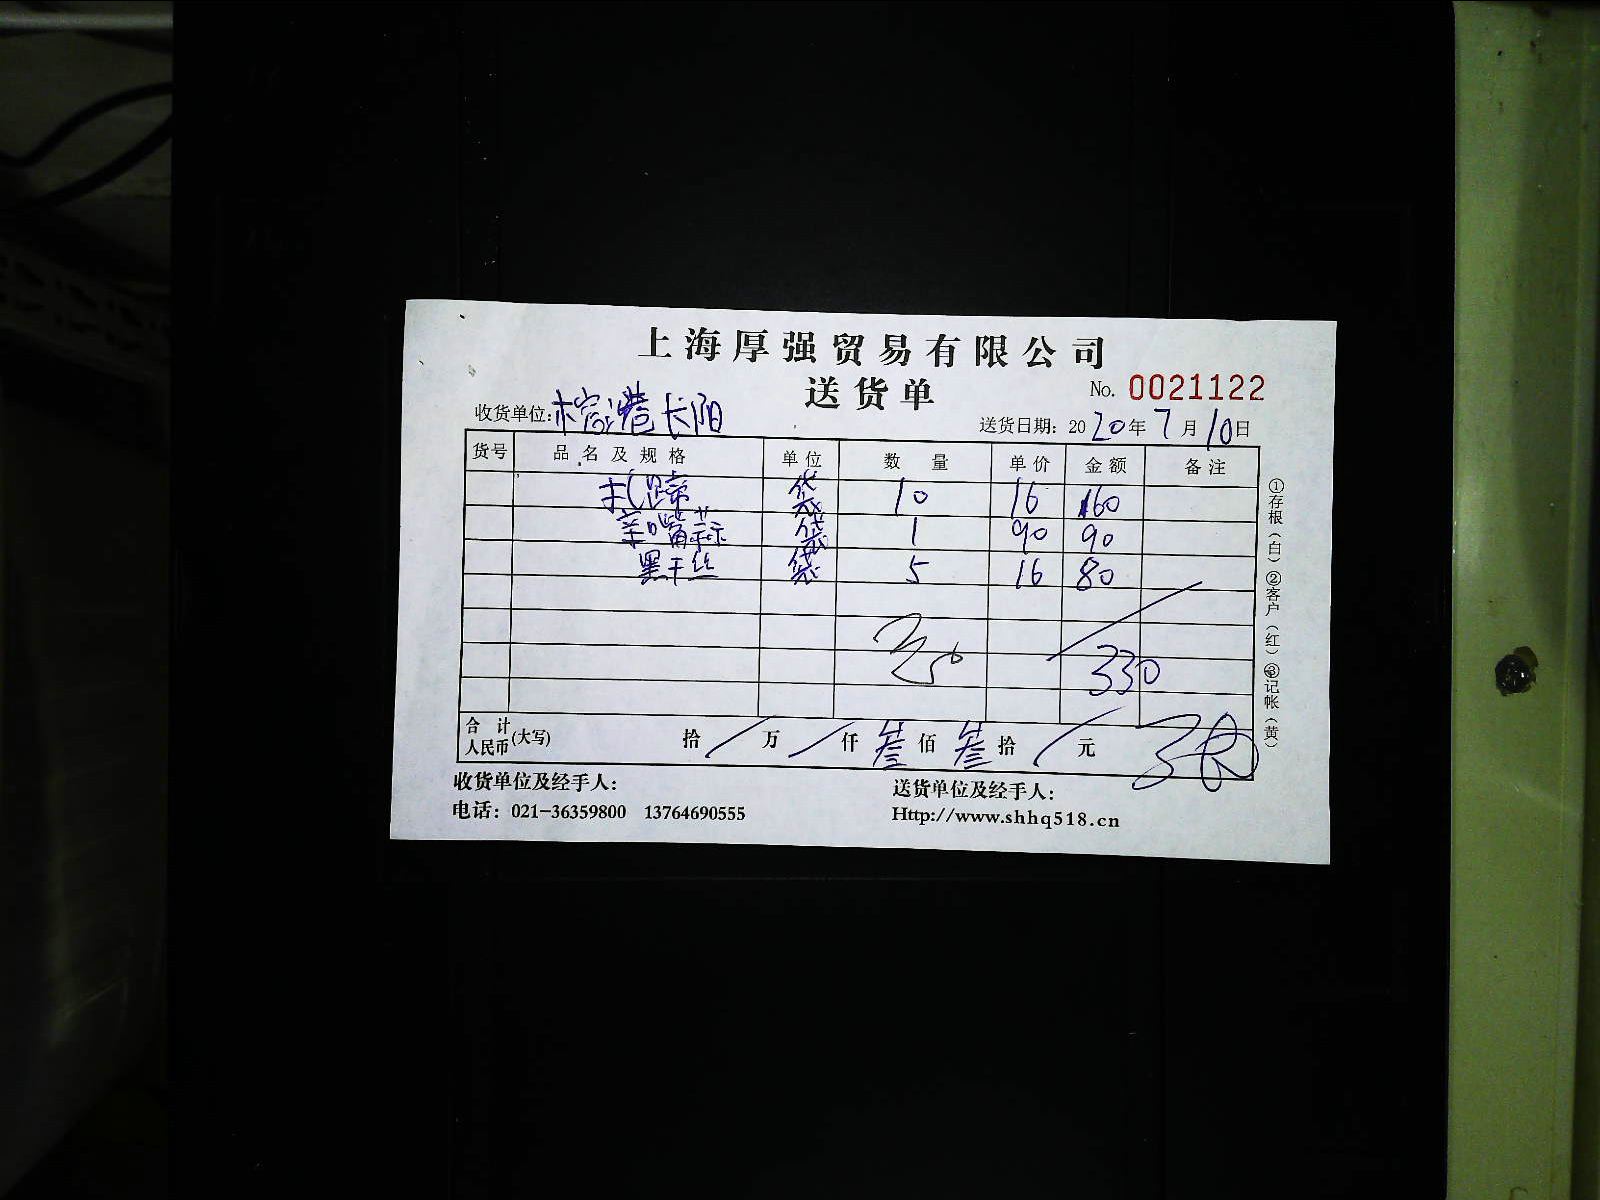 上海厚强贸易有限公司
送货单
No. 0021122
收货单位:榕港长阳
送货日期:2020年7月10日
货号 品名及规格 单位 数量 单价 金额 备注
扎蹄 袋 10 16 160
羊 袋 1 90 90
黑干丝 袋 5 16 80
330
合计人民币(大写) 拾/万/仟叁佰叁拾/元
收货单位及经手人:
送货单位及经手人:
电话:021-36359800 13764690555
Http://www.shhq518.cn
①存根(白)②客户(红)③记帐(黄)